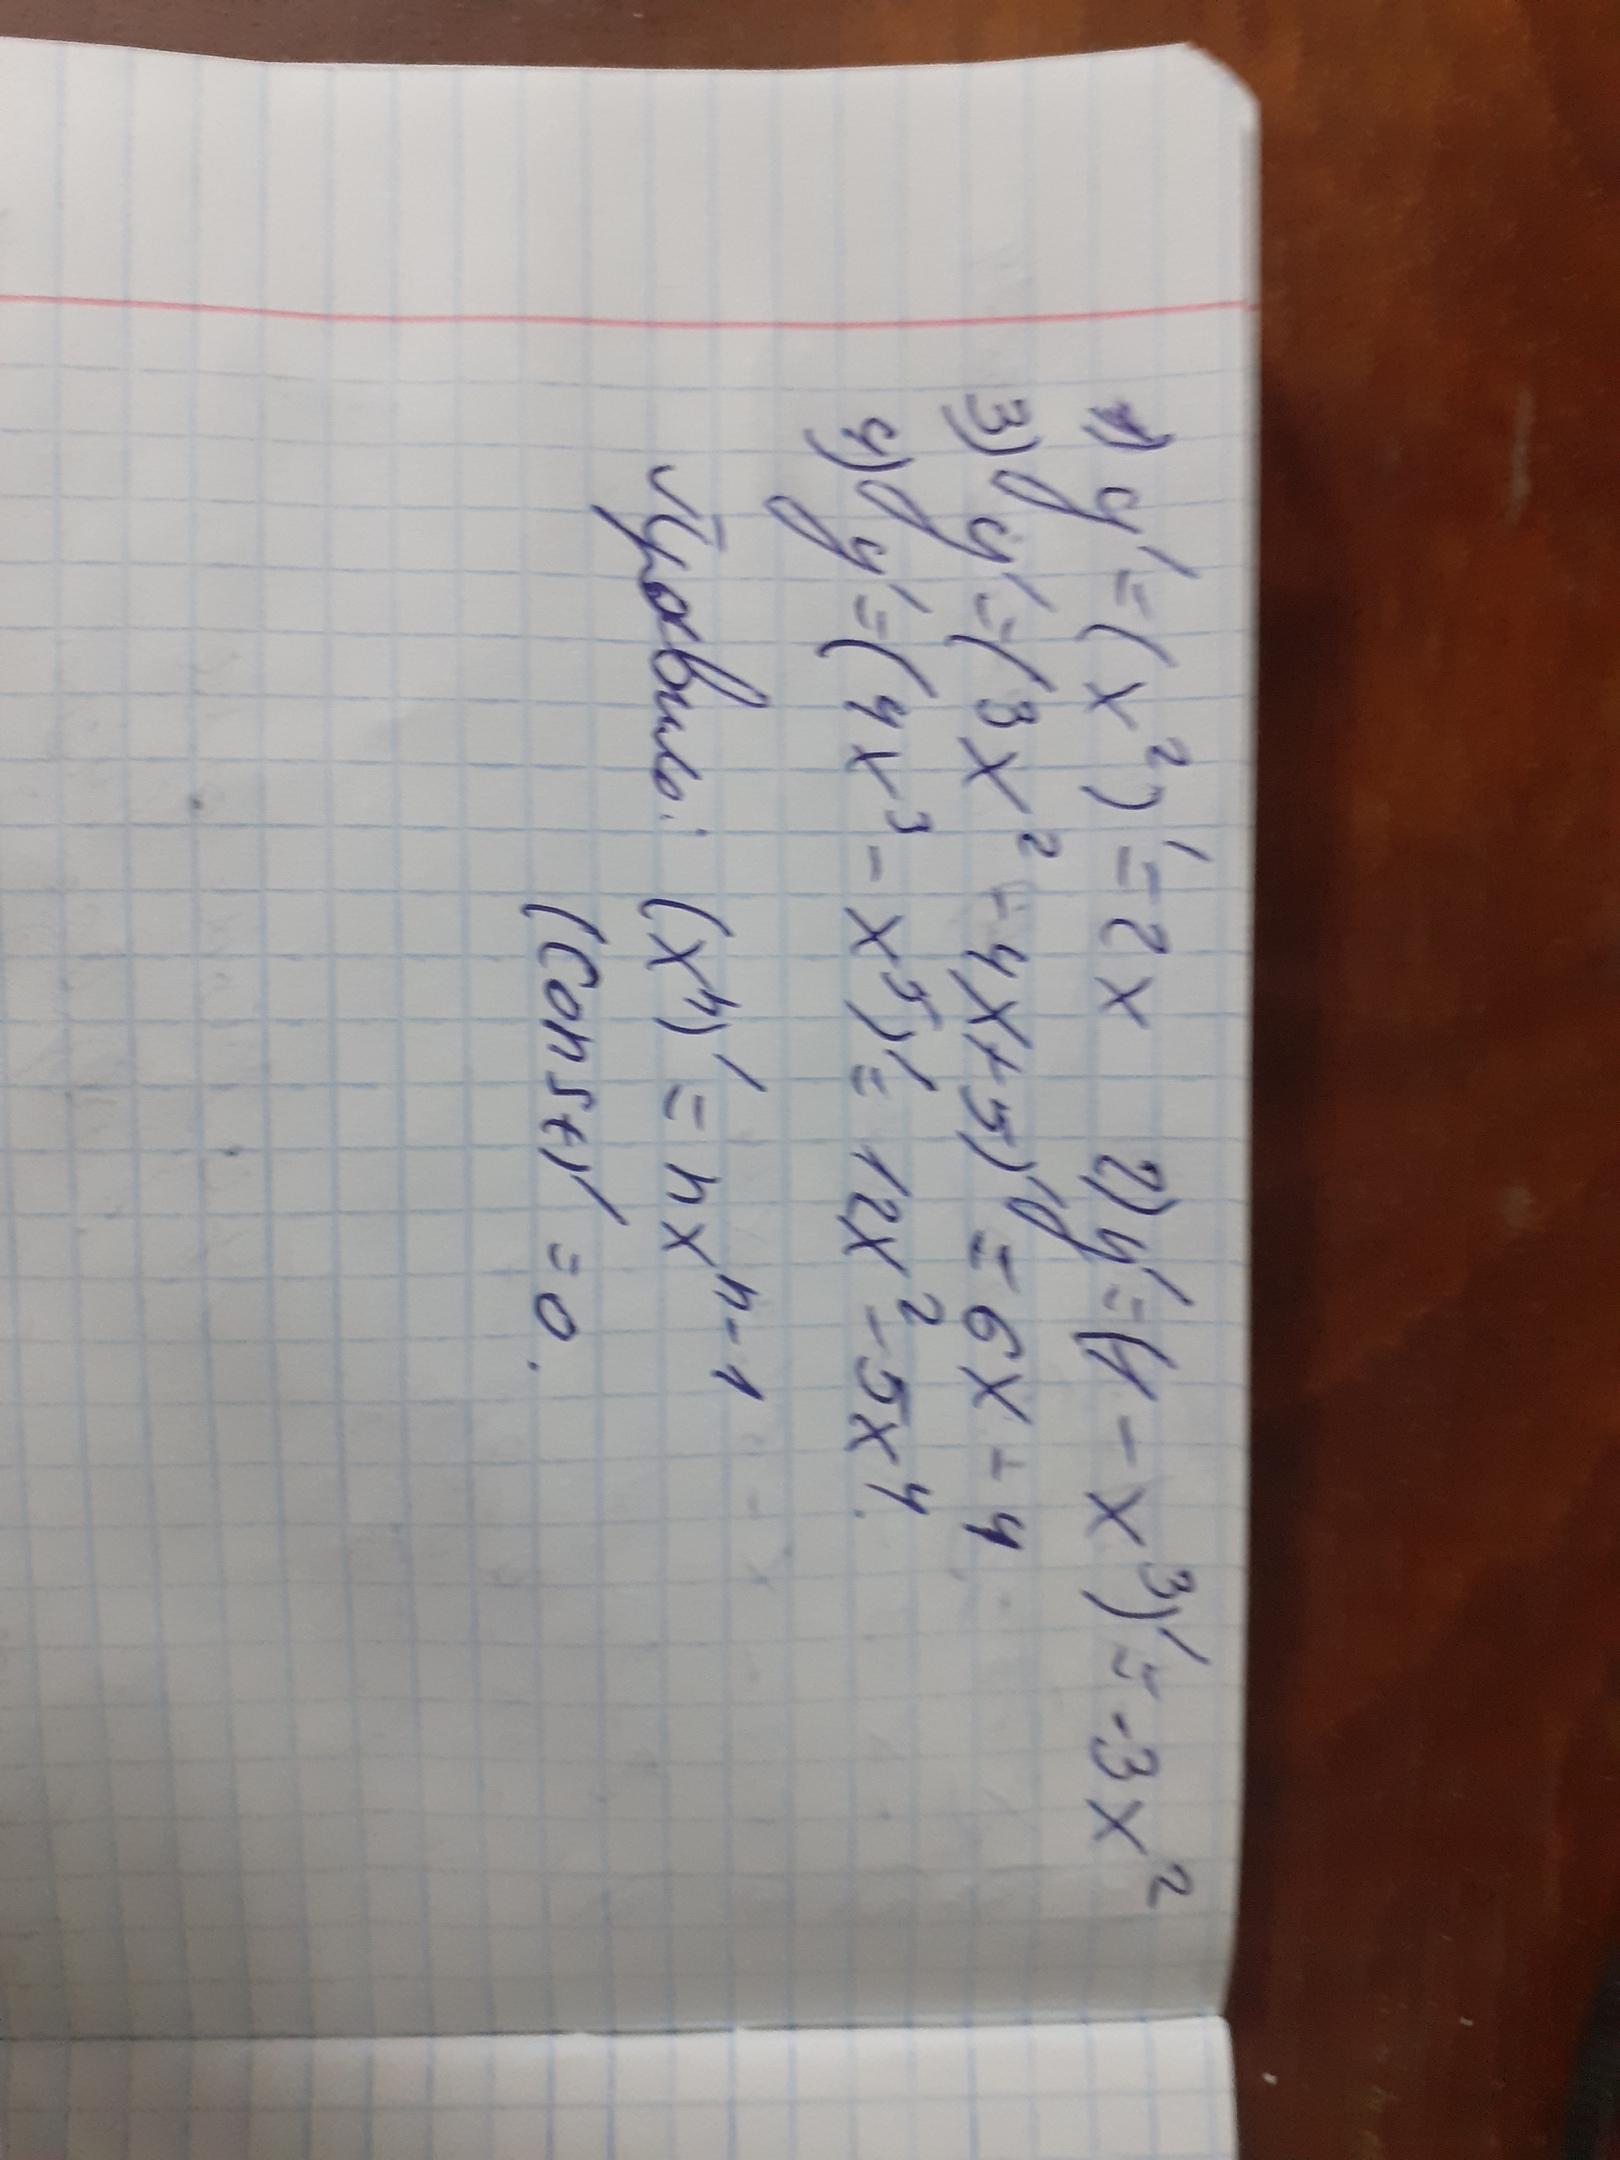 1) y' = (x²)' = 2x 2) y' = (4 - x³)' = -3x²
3) y' = (3x² - 4x + 5)' = 6x - 4
4) y' = (4x³ - x⁵)' = 12x² - 5x⁴.
Правило: (xⁿ)' = nxⁿ⁻¹
(Const)' = 0.